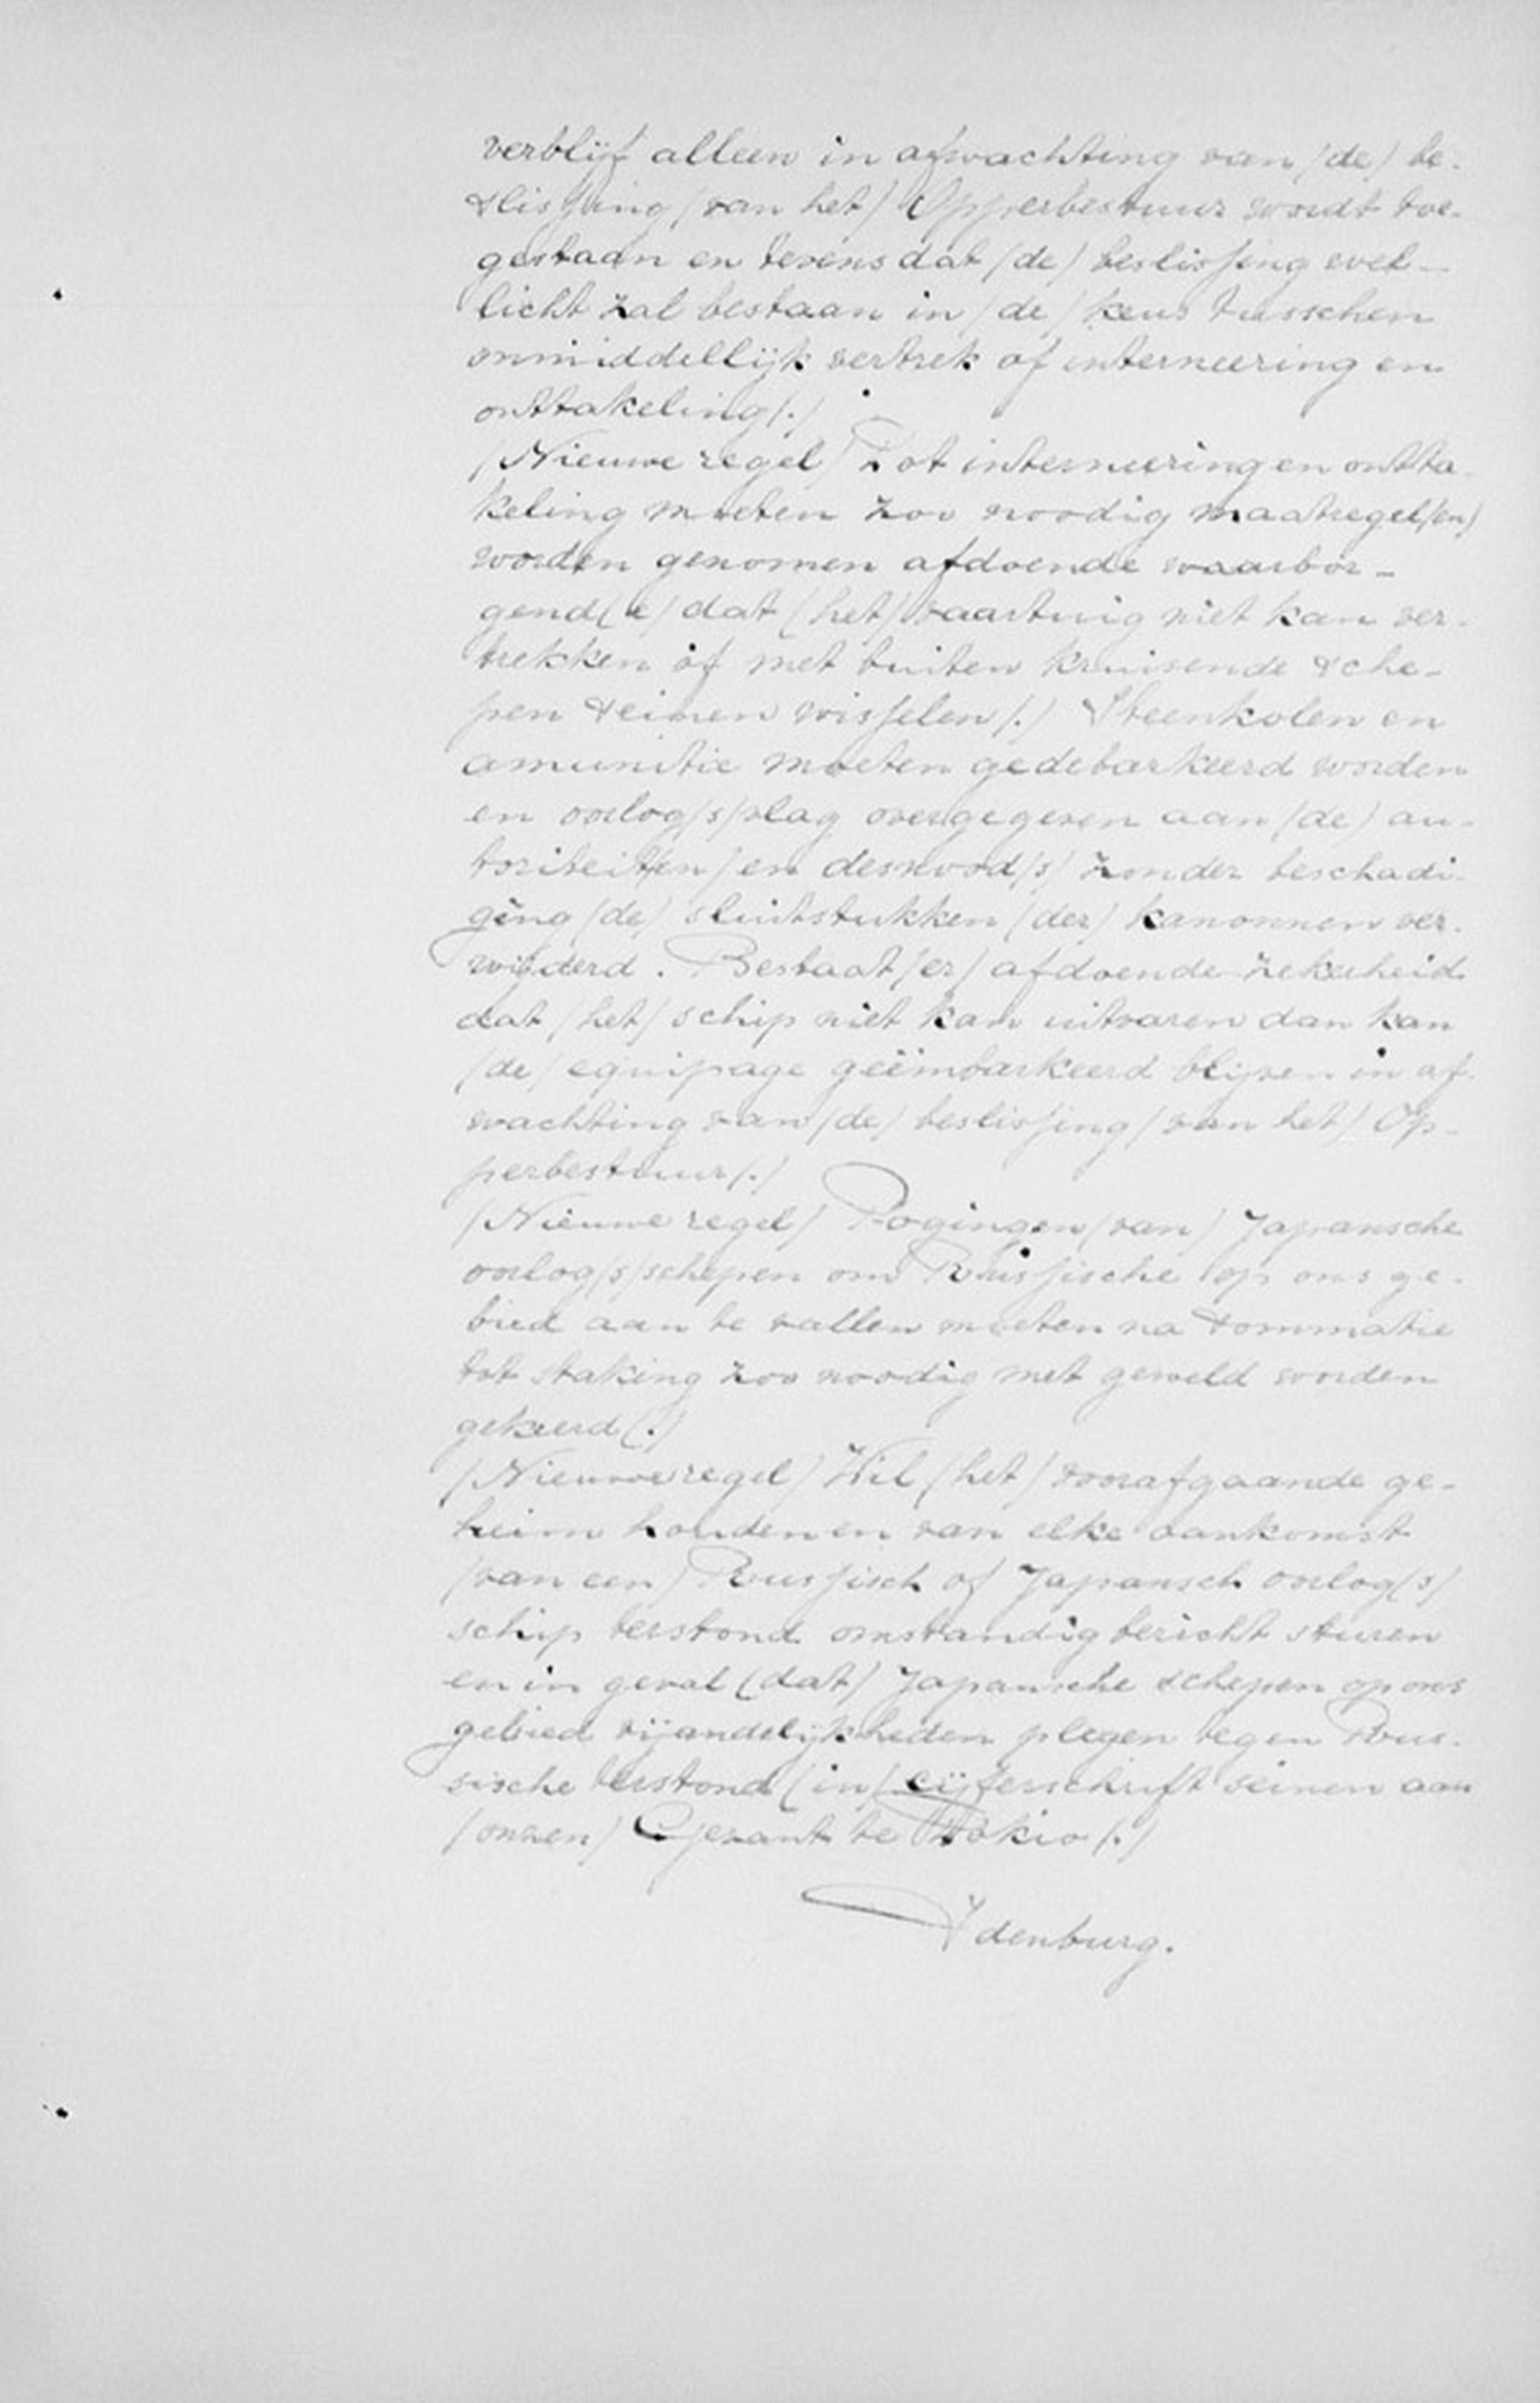 verblijf alleen in afwachting van (de) be-
slissing (van het) Opperbestuur wordt toe-
gestaan en tevens dat (de) beslissing wel-
licht zal bestaan in (de) keus tusschen
onmiddellijk vertrek of interneering en
onttakeling (.)
(Nieuwe regel) Tot interneering en ontta-
keling moeten zoo noodig maatregel(en)
worden genomen afdoende waarbor-
gend(e) dat (het) vaartuig niet kan ver-
trekken of met buiten kruisende sche-
pen seinen wisselen (.) Steenkolen en
amunitie moeten gedebarkeerd worden
en oorlog(s)vlag overgegeven aan (de) au-
toriteit(en) en desnood(s) zonder beschadi-
ging (de) sluitstukken (der) kanonnen ver-
wijderd. Bestaat (er) afdoende zekerheid
dat (het) schip niet kan uitvaren dan kan
(de) equipage geëmbarkeerd blijven in af-
wachting van (de) beslissing (van het) Op-
perbestuur (.)
(Nieuwe regel) Pogingen (van) Japansche
oorlog(s)schepen om Russische op ons ge-
bied aan te vallen moeten na sommatie
tot staking zoo noodig met geweld worden
gekeerd (.)
(Nieuwe regel) Wil (het) voorafgaande ge-
heim houden en van elke aankomst
(van een) Russisch of Japansch oorlog(s)
schip terstond omstandig bericht sturen
en in geval (dat) Japansche schepen op ons
gebied vijandelijkheden plegen tegen Rus-
sische terstond (in) cijferschrift seinen aan
(onzen) Gezant te Tokio (.)
Idenburg.